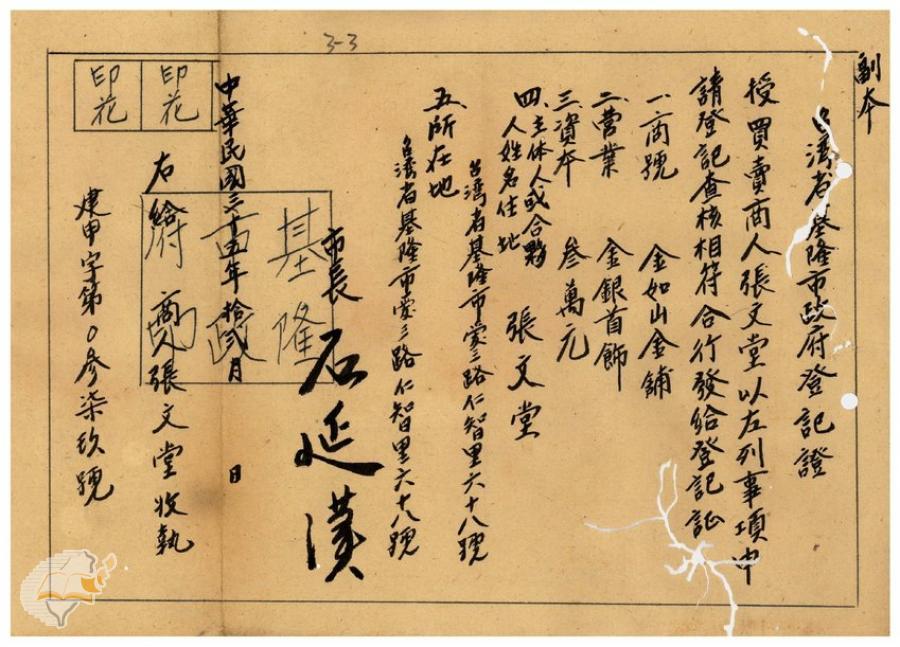 副本
台灣省基隆市政府登記證
授買賣商人張文堂以左列事項申
請登記查核相符合行發給登記証
一、商號 金如山金舖
二、營業 金銀首飾
三、資本 叁萬元
四、主体人或合夥人姓名住址 張文堂
台湾省基隆市愛三路仁智里六十八號
五、所在地
台湾省基隆市愛三路仁智里六十八號
市長 石延漢
基隆
市政
府
中華民國三十五年拾弍月 日
右給商人張文堂收執
建甲字第0參柒玖號
印花
印花
3-3